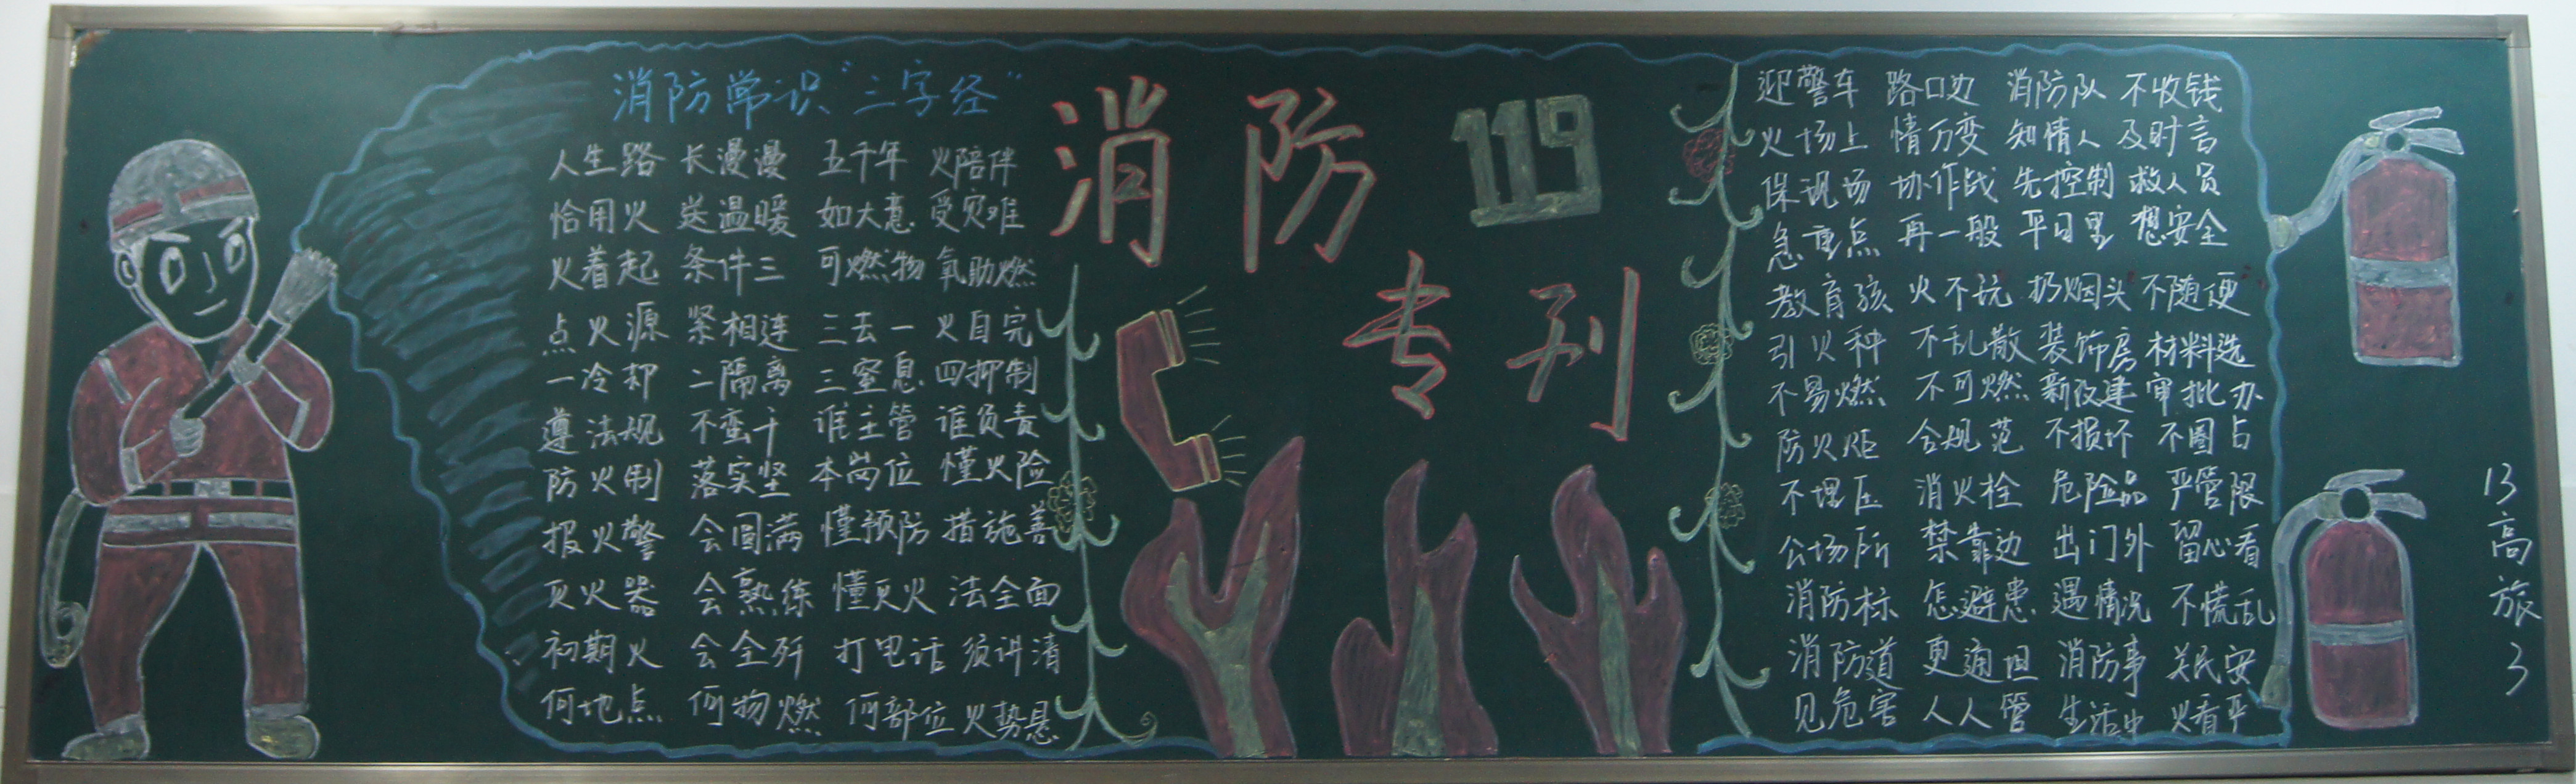 消防常识“三字经”
人生路 长漫漫 五千年 火陪伴
恰用火 送温暖 如大意 受灾难
火着起 条件三 可燃物 氧助燃
点火源 紧相连 三去一 火自完
一冷却 二隔离 三窒息 四抑制
遵法规 不蛮干 谁主管 谁负责
防火制 落实坚 本岗位 懂火险
报火警 会圆满 懂预防 措施善
灭火器 会熟练 懂灭火 法全面
初期火 会全歼 打电话 须讲清
何地点 何物燃 何部位 火势悬
消防
119
专刊
迎警车 路口边 消防队 不收钱
火场上 情万变 知情人 及时言
保现场 协作战 先控制 救人员
急重点 再一般 平日里 想安全
教育孩 火不玩 扔烟头 不随便
引火种 不乱散 装饰房 材料选
不易燃 不可燃 新改建 审批办
防火炬 合规范 不损坏 不圈占
不埋压 消火栓 危险品 严管限
公场所 禁靠边 出门外 留心看
消防标 怎避患 遇情况 不慌乱
消防道 更通坦 消防事 关民安
见危害 人人管 生活中 火看严
13高旅3